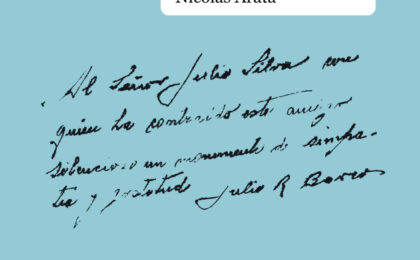 Nicolás Arata
Al Señor Julio Silva con
quien ha contraído este amigo
silencioso un monumento de simpa-
tía y gratitud Julio R Barcos